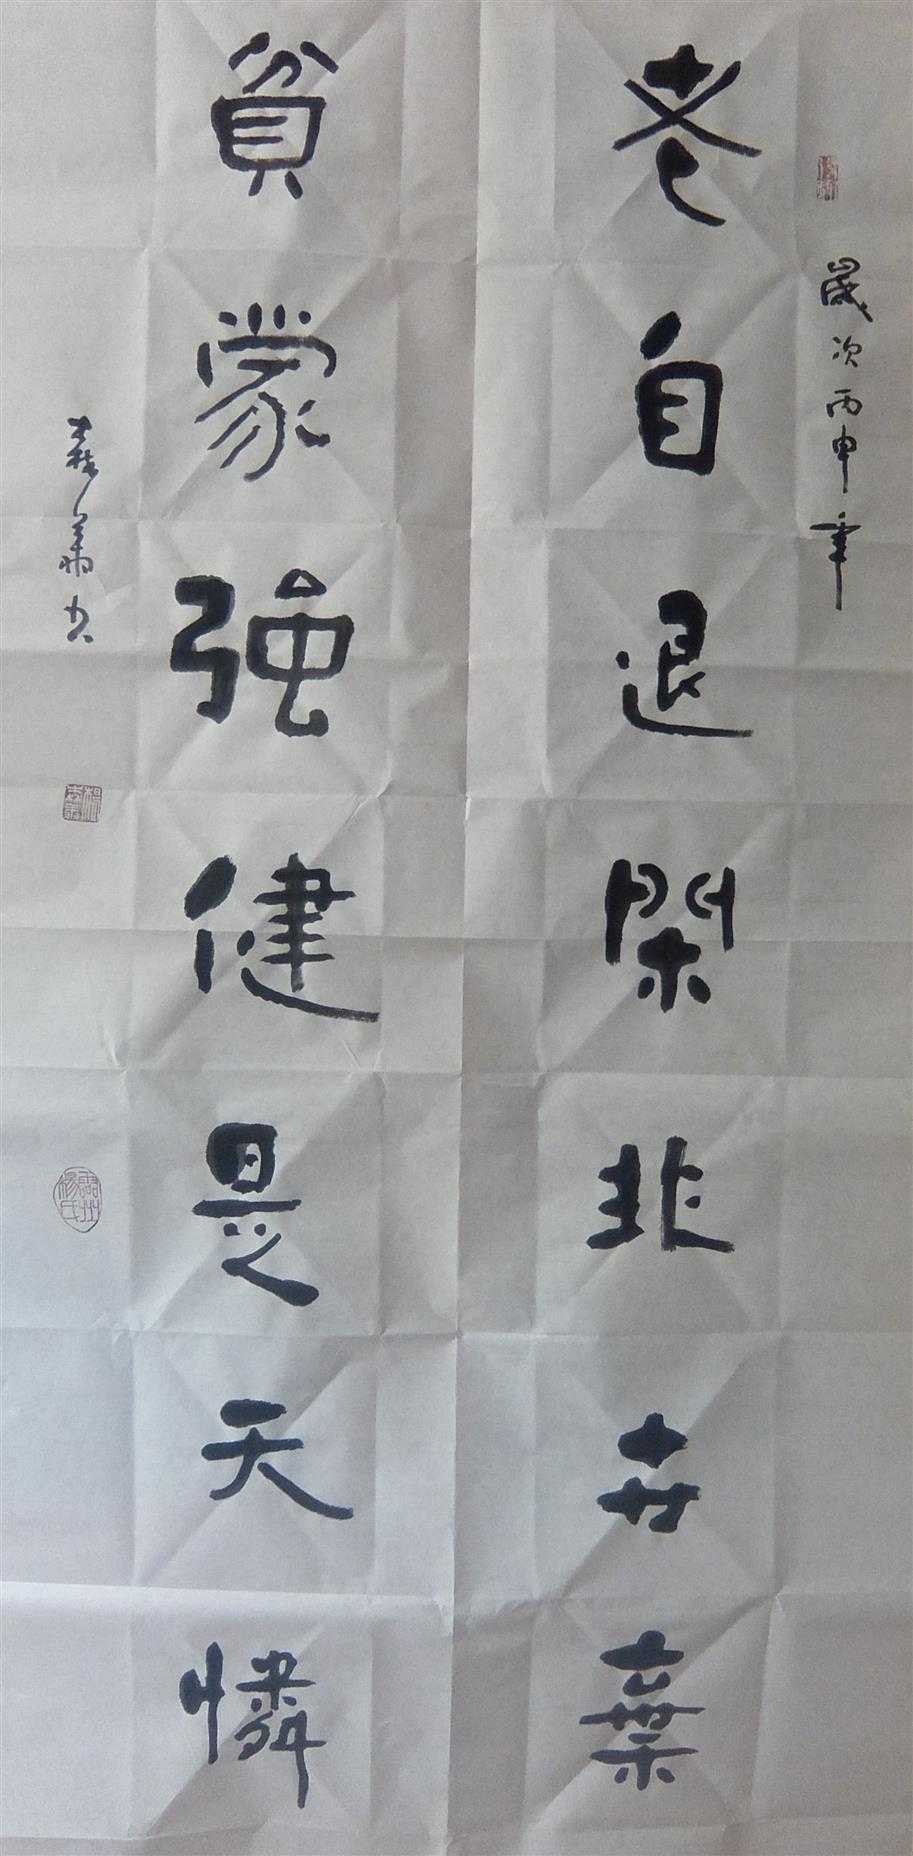 歲次丙申年
老自退閑非世棄
貧蒙強健是天憐